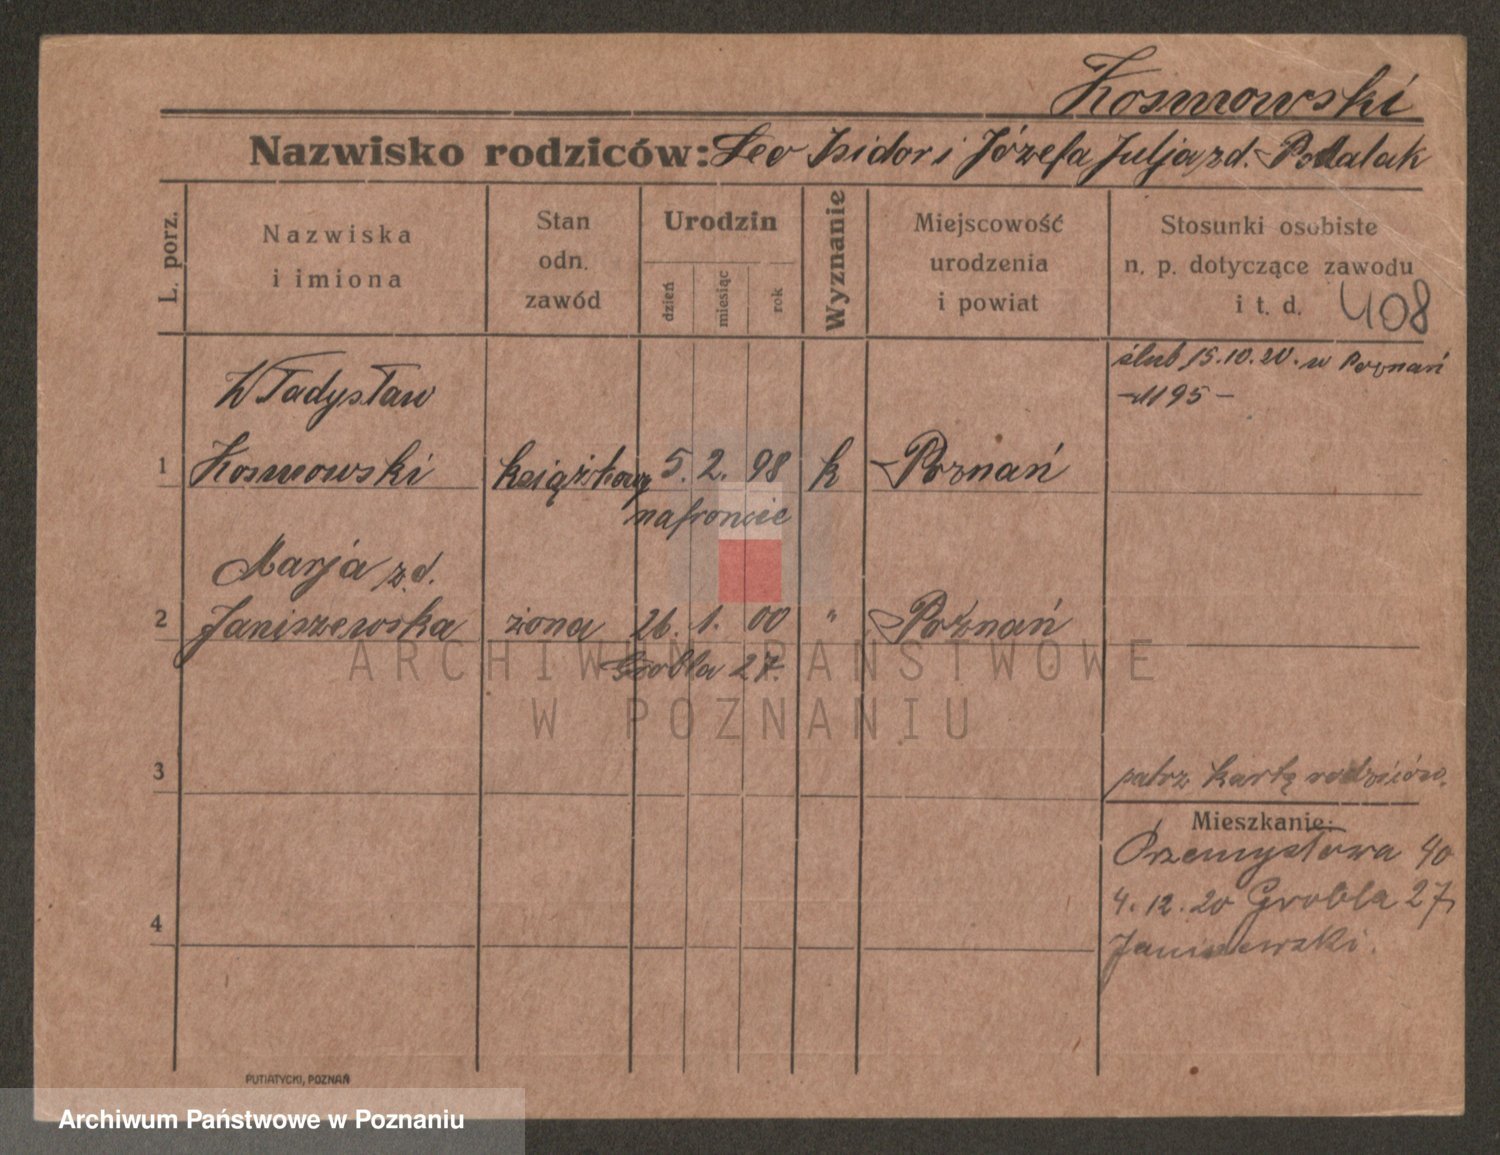 Kosmowski
Nazwisko rodziców: Leo Isidor i Józefa Julja zd. Podalak
L. porz.
Nazwiska
i imiona
Stan
odn.
zawód
Urodzin
dzień
miesiąc
rok
Wyznanie
Miejscowość
urodzenia
i powiat
Stosunki osobiste
n. p. dotyczące zawodu
i t. d. 408
ślub 15.10.20. w Poznań
1195 –
Władysław
1 Kosmowski książkowy 5. 2. 98 k Poznań
na froncie
Marja zd.
2 Janiszewska żona 26. 1. 00 " Poznań
Grobla 27.
3
patrz kartę rodziców.
Mieszkanie:
Przemysłowa 40
4. 12. 20 Grobla 27,
4
Janiszewski.
PUTIATYCKI, POZNAŃ
ARCHIWUM PAŃSTWOWE
W POZNANIU
Archiwum Państwowe w Poznaniu